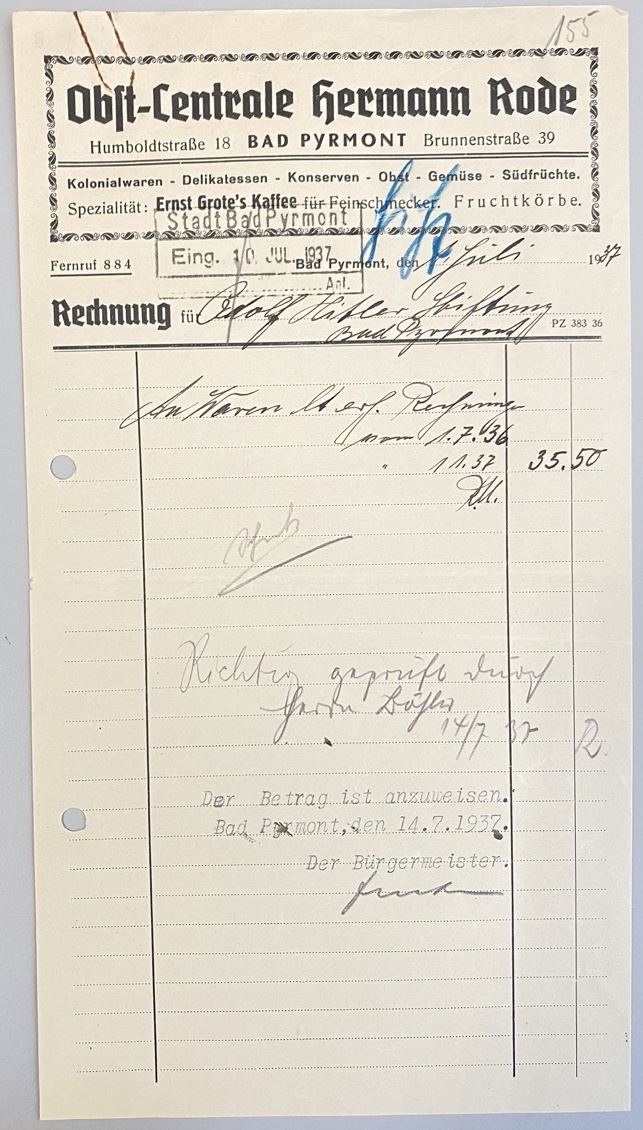 155
Obst-Centrale Hermann Rode
Humboldtstraße 18 BAD PYRMONT Brunnenstraße 39
Kolonialwaren - Delikatessen - Konserven - Obst - Gemüse - Südfrüchte.
Spezialität: Ernst Grote's Kaffee für Feinschmecker. Fruchtkörbe.
Stadt Bad Pyrmont
Eing. 10. JUL. 1937
Anl.
Fernruf 884
Bad Pyrmont, den 1. Juli 1937
Rechnung für Adolf Hitler Stiftung
Bad Pyrmont
PZ 383 36
An Waren lt erh. Rechnunge
vom 1.7.36
" 1 1.37 35.50
RM.
Richtig geprüft durch
Herrn
14/7 37
Der Betrag ist anzuweisen.
Bad Pyrmont, den 14.7.1937.
Der Bürgermeister.